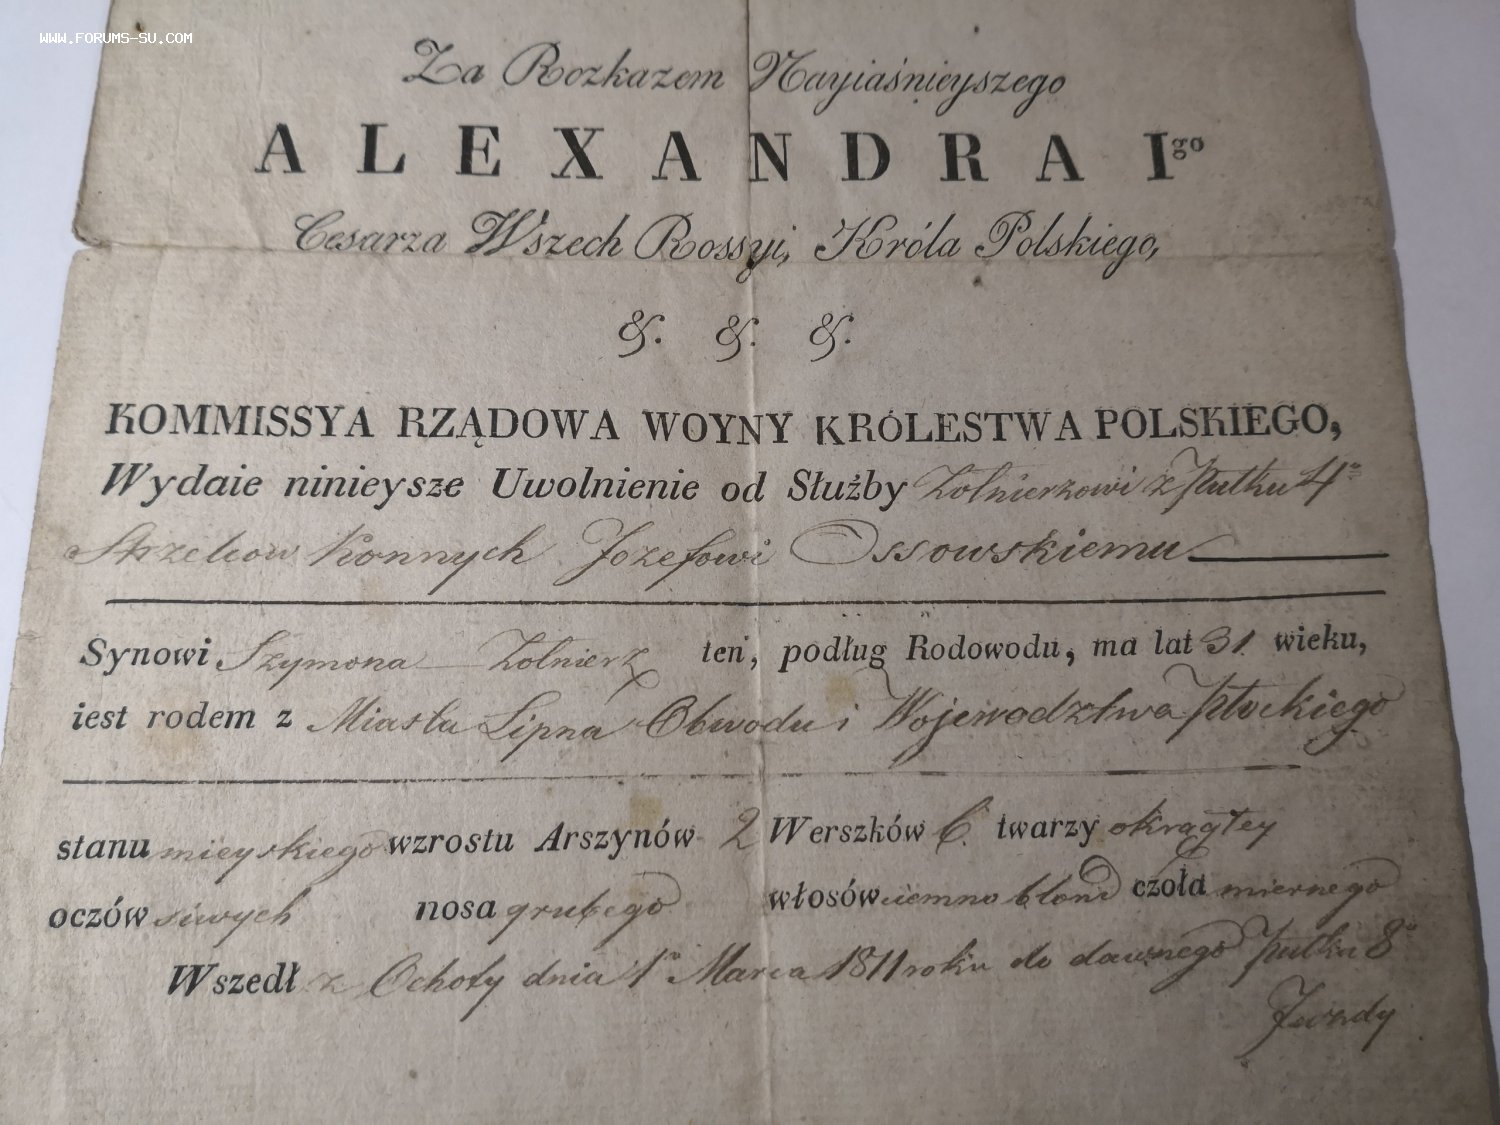 www.forums-su.com
Za Rozkazem Nayiaśnieyszego
ALEXANDRA Igo
Cesarza Wszech Rossyi, Króla Polskiego,
&. &. &.
KOMMISSYA RZĄDOWA WOYNY KRÓLESTWA POLSKIEGO,
Wydaie ninieysze Uwolnienie od Służby Zołnierzowi z Pułku 4o
Strzelcow Konnych Jozefowi Ossowskiemu
Synowi Szymona Zołnierz ten, podług Rodowodu, ma lat 31 wieku,
iest rodem z Miasta Lipna Obwodu i Wojewodztwa Płockiego
stanu mieyskiego wzrostu Arszynów 2 Werszków 6. twarzy okrągłey
oczów siwych nosa grubego włosów ciemno blond czoła miernego
Wszedł z Ochoty dnia 1o Marca 1811 roku do dawnego Pułku 8o
Jazdy